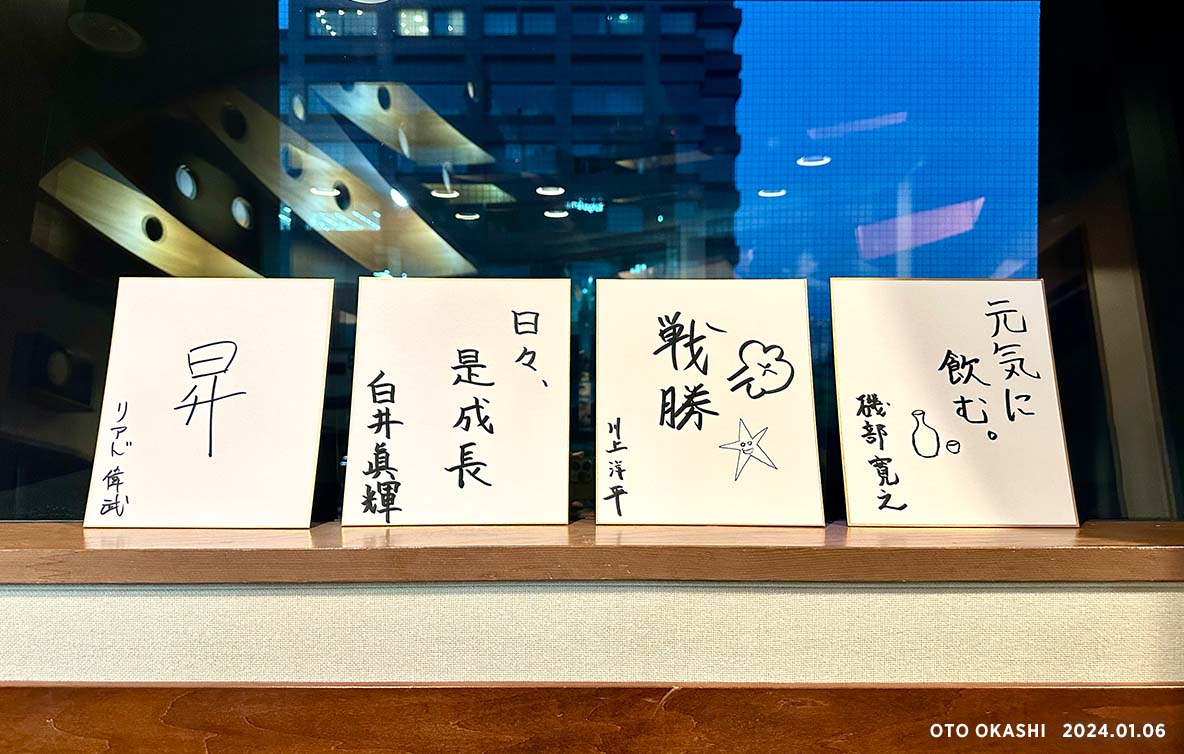 昇
リアド偉武
日々、
是成長
白井眞輝
戦勝
川上洋平
元気に
飲む。
磯部寛之
OTO OKASHI 2024.01.06